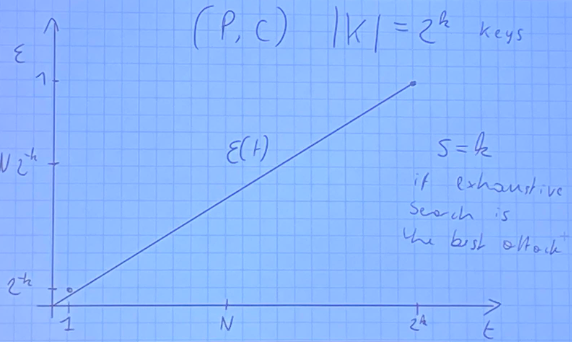 (P, C) |K| = 2^k keys
ε
1
ε(t)
N 2^-k
S = k
if exhaustive
search is
the best attack
2^-k
1 N 2^k t